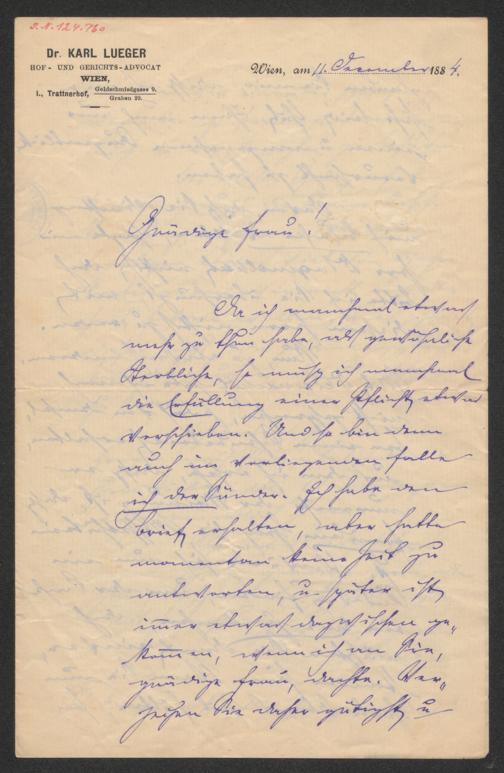 I.N. 124.760
Dr. KARL LUEGER
HOF- UND GERICHTS-ADVOCAT
WIEN,
I., Trattnerhof, Goldschmiedgasse 9.
Graben 29.
Wien, am 11. December 1884.
Gnädige Frau!
Da ich manchmal etwas
mehr zu thun habe, als gewöhnliche
Sterbliche, so muß ich manchmal
die Erfüllung einer Pflicht etwas
verschieben. Und so bin denn
auch im vorliegenden Falle
ich der Sünder. Ich habe den
Brief erhalten, aber hatte
momentan keine Zeit zu
antworten, u. später ist
immer etwas dazwischen ge„
kommen, wenn ich an Sie,
gnädige Frau, dachte. Ver„
zeihen Sie daher gütigst u